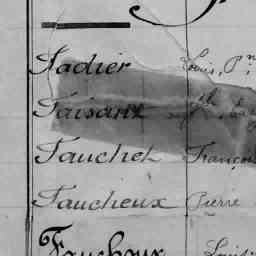 Fadier Louis, P.
Faisant
Fauchet François
Faucheux Pierre
Faucheux Louis